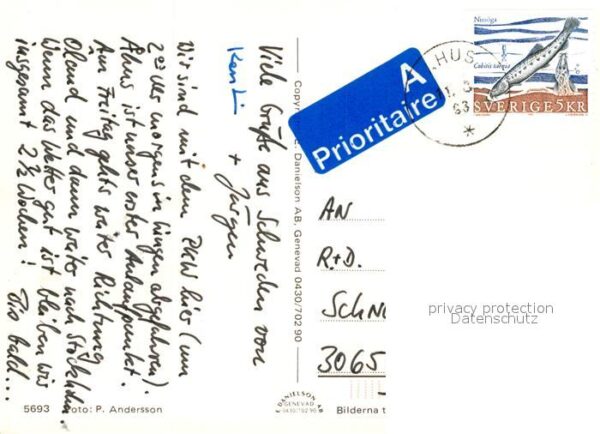 Viele Grüße aus Schweden von
+ Jürgen
Wir sind mit dem PKW hier (um
2 Uhr morgens in abgefahren).
Åhus ist unser erster Anlaufpunkt.
Am Freitag gehts weiter Richtung
Öland und dann weiter nach Stockholm.
Wenn das Wetter gut ist bleiben wir
insgesamt 2 ½ Wochen!
Bis bald...
5693 Foto: P. Andersson
Danielson AB. Genevad 0430/702 90
DANIELSON AB
GENEVAD
0430/702 90
Bilderna t
A
Prioritaire
HUS
93
Nissöga
Cobitis taenia
SVERIGE 5 KR
AN
R.+D.
SCHN
3065
privacy protection
Datenschutz